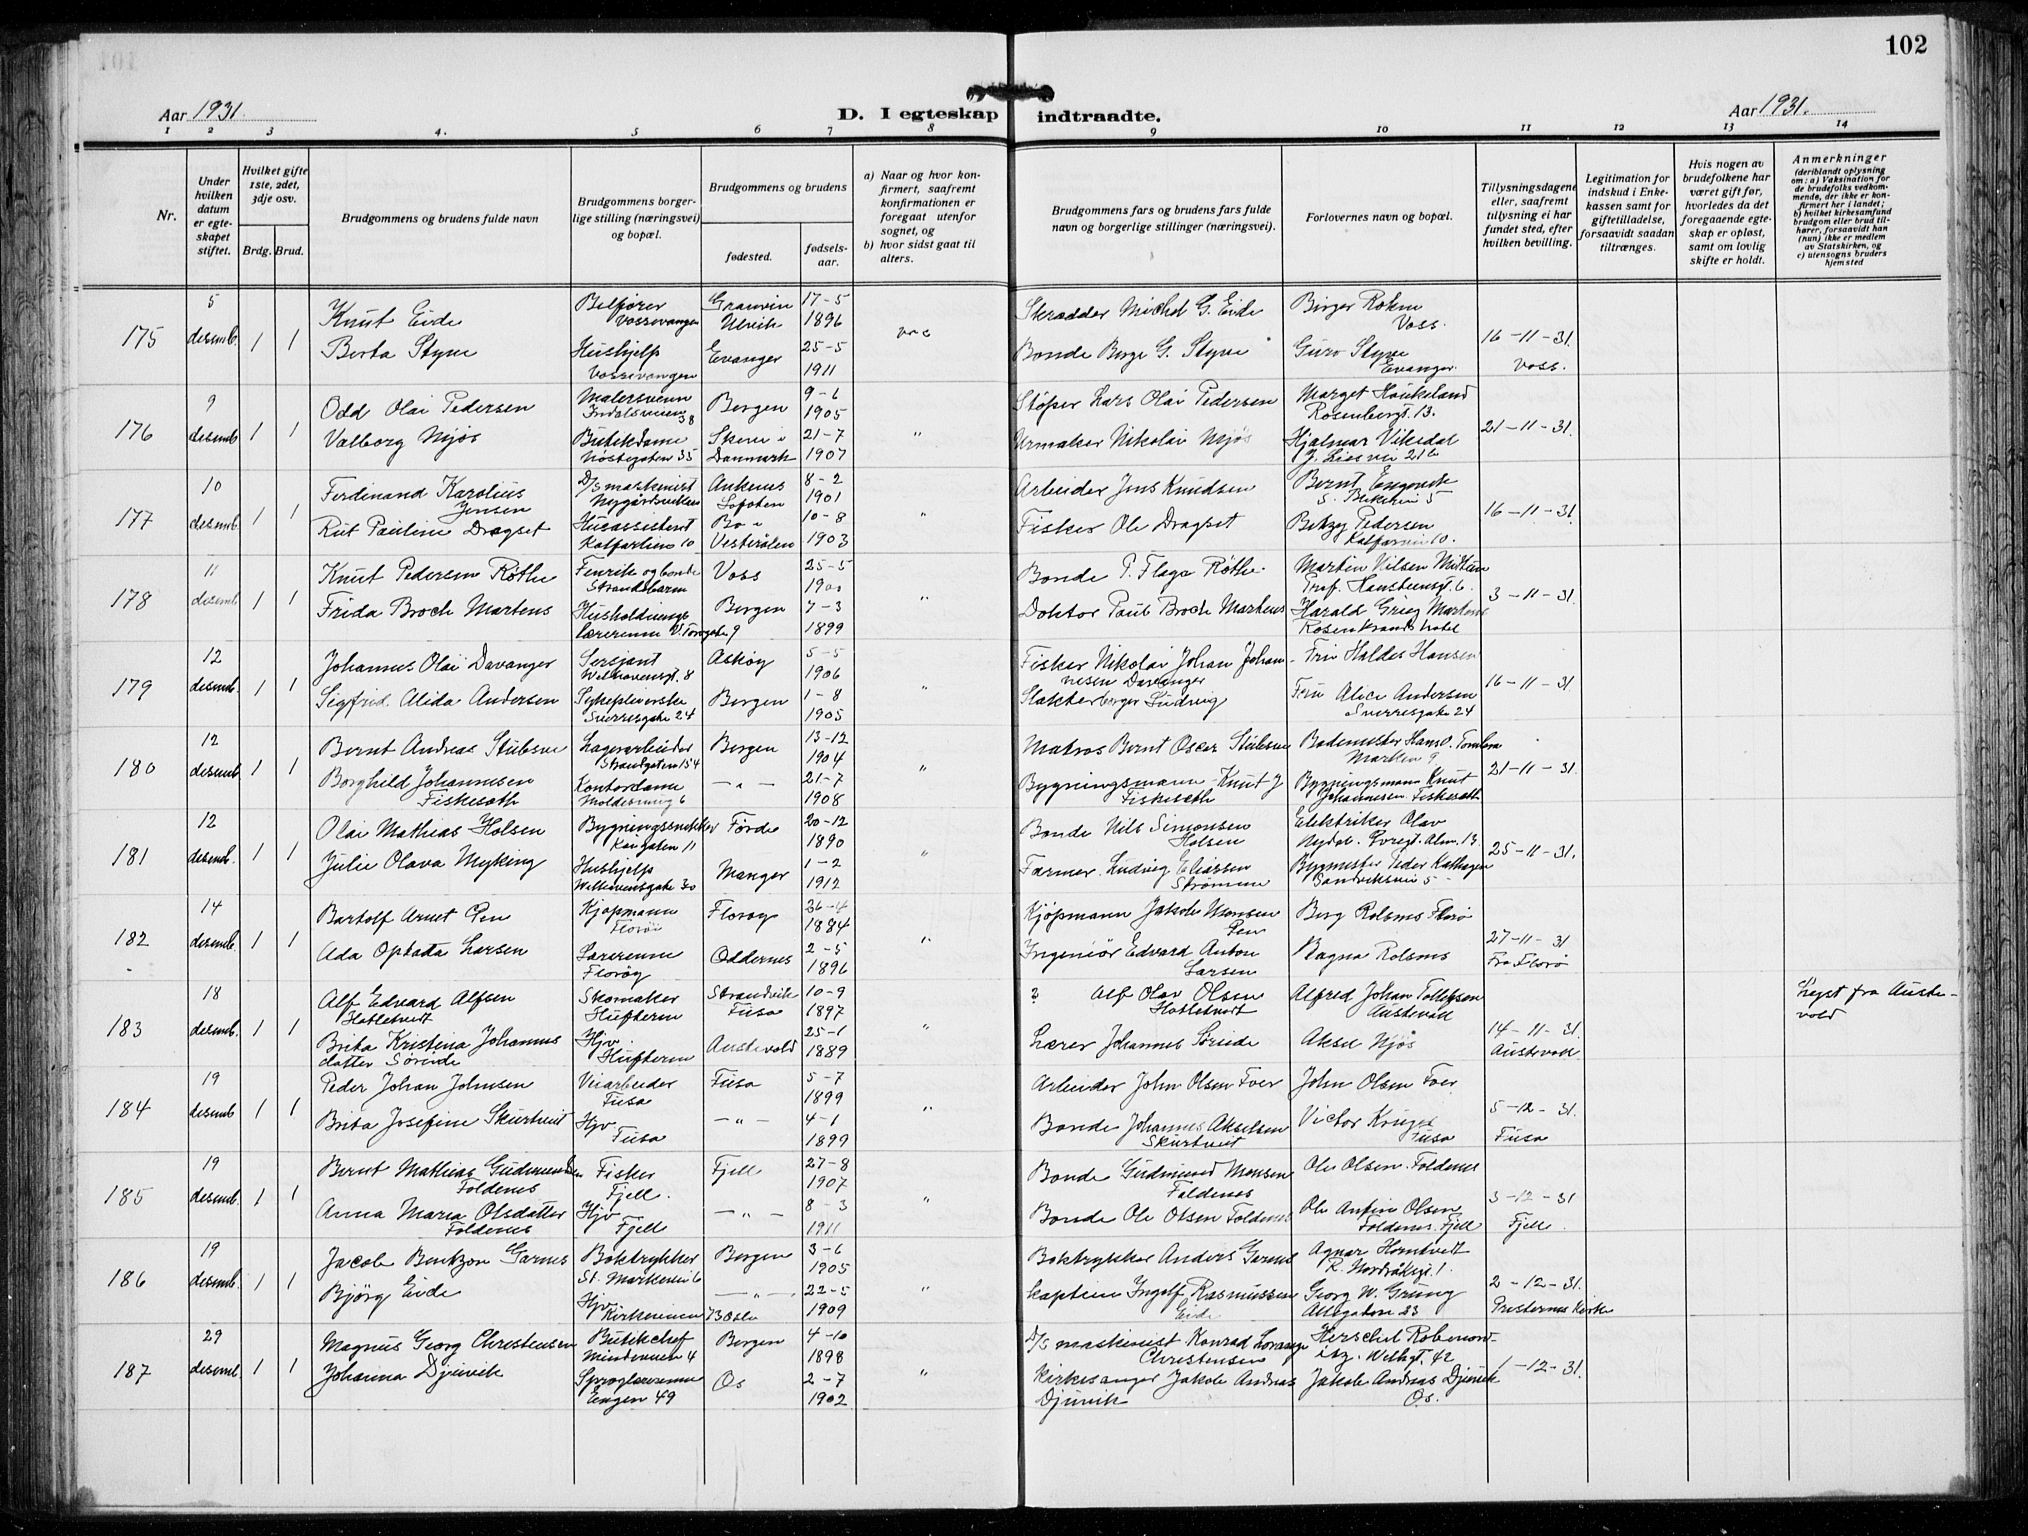 102
Aar 1931.
D. I egteskap indtraadte.
Aar 1931.
1 2 3 4. 5 6 7 8 9 10 11 12 13 14
Nr.
Under hvilken datum er egteskapet stiftet.
Hvilket gifte 1ste, 2det, 3dje osv.
Brdg. Brud.
Brudgommens og brudens fulde navn
Brudgommens borgerlige stilling (næringsvei) og bopæl.
Brudgommens og brudens
fødested.
fødselsaar.
a) Naar og hvor konfirmert, saafremt konfirmationen er foregaat utenfor sognet, og
b) hvor sidst gaat til alters.
Brudgommens fars og brudens fars fulde navn og borgerlige stillinger (næringsvei).
Forlovernes navn og bopæl.
Tillysningsdagene eller, saafremt tillysning ei har fundet sted, efter hvilken bevilling.
Legitimation for indskud i Enkekassen samt for giftetilladelse, forsaavidt saadan tiltrænges.
Hvis nogen av brudefolkene har været gift før, hvorledes da det foregaaende egteskap er opløst, samt om lovlig skifte er holdt.
Anmerkninger
(deriblandt oplysning om: a) Vaksination for de brudefolks vedkommende, der ikke er konfirmert her i landet; b) hvilket kirkesamfund brudgom eller brud tilhører, forsaavidt han (nun) ikke er medlem av Statskirken, og c) utensogns bruders hjemsted
175 5 desemb. 1 1
Knut Eide Vossevangen Granvin Ulvik 17-5 1896 Skrædder Michel G. Eide Birger Rokne Voss.
Berta Styve Hushjelp Vossevangen Evanger 25-5 1911 Bonde Børge G. Styve Guro Styve Evanger. 16-11-31. Voss.
176 9 desemb. 1 1
Odd Olai Pedersen Malersvenn 38 Bergen 9-6 1905 Støper Lars Olai Pedersen Marget Haukeland Rosenbergt. 13.
Valborg Mjøs Butikdame Nøstegaten 35 Danmark 21-7 1907 " Urmaker Nikolai Mjøs Hjalmar Vikedal 21-11-31.
177 10 desemb. 1 1
Ferdinand Karolius Jensen D/s maskenist Ankenes Lofoten 8-2 1901 Arbeider Jens Knudsen Bernt
Rut Pauline Dragset Kalfarlien 10 Bø i Vesterålen 10-8 1903 " Fisker Ole Dragset Pedersen 16-11-31.
178 11 desemb. 1 1
Knut Pedersen Røthe Fenrik og bonde Strandebarm Voss 25-5 Bonde P. Flaga Røthe. Martin Nilsen
Frida Broch Martens Husholdnings lærerinne Bergen 7-3 1899 " Doktor Paul Broch Martens Harald Grieg Martens Rosenkrantz hotel 3-11-31.
179 12 desemb. 1 1
Johannes Olai Davanger Sersjant Welhavensgt. 8 Askøy 5-5 1906 Fisker Nikolai Johan Johannesen Davanger Fru Haldis Hansen
Sigfrid Alida Andersen Sykepleierske Sverresgate 24 Bergen 1-8 1905 " Ludvig Fru Alice Andersen Sverresgate 24 16-11-31.
180 12 desemb. 1 1
Bernt Andreas Stubseve Lagerarbeider Strandgaten 154 Bergen 13-12 1904 Matros Bernt Oscar Marken 9
Borghild Johannesen Fiskeseth Kontordame 6 -"- 21-7 1908 " Bygningsmann Knut J Fiskeseth Bygningsmann Knut Johannesen Fiskeseth 21-11-31.
181 12 desemb. 1 1
Olai Mathias Holsen Bygningssnekker 11 Førde 20-12 1890 Bonde Nils Simonsen Holsen Elektriker Olav
Julie Olava Myking Hushjelp Welhavensgate 30 Manger 1-2 1912 " Farmer Ludvig Eliassen Bygmester Peder Sandviksvei 5 25-11-31.
182 14 desemb. 1 1
Bartolf Arnt Kjøpmann Florø 1884 Kjøpmann Jakob Monsen Florø
Ada Larsen Lærerinne Florøy Oddernes 2-5 1896 " Ingeniør Edvard Anton Larsen Ragna 27-11-31 Fra Florø
183 18 desemb. 1 1
Alf Edvard Alfsen Hatletvedt Skomaker Huftern Strandvik Fusa 10-9 1897 ? Alf Olav Olsen Hatletvedt Alfred Johan Tollefsen Austevoll Lyst fra Austevold
Brita Kristina Johannesdatter Hjv. Huftern Austevold 25-1 1889 " Lærer Johannes Aksel Mjøs 14-11-31. Austevoll
184 19 desemb. 1 1
Peder Johan Johnsen Veiarbeider Fusa Fusa 5-7 1899 Arbeider John Olsen John Olsen
Brita Josefine Skurtveit Hjv Fusa -"- 4-1 1899 " Bonde Johannes Akselsen Skurtveit Victor Fusa 5-12-31. Fusa
185 19 desemb. 1 1
Bernt Mathias Foldenes Fisker Fjell. Fjell 27-8 1907 Bonde Gudmund Monsen Foldenes Ole Olsen Foldenes
Anna Maria Olsdatter Foldenes Hjv Fjell -"- 8-3 1911 " Bonde Ole Olsen Foldenes Ole Olsen Foldenes. Fjell 3-12-31 Fjell.
186 19 desemb. 1 1
Jacob Bentzon Garnes Boktrykker St. Bergen 3-6 1905 Boktrykker Anders Garnes Agnar Horntvedt
Bjørg Eide Hjv -"- 22-5 1909 " Kaptein Ingolf Rasmussen Eide Georg W. Grung Allegaten 23 2-12-31.
187 29 desemb. 1 1
Magnus Georg Christensen Butikchef 4 Bergen 4-10 1898 D/s maskinist Konrad Christensen Herschel
Johanna Djuvik Sproglærerinne Engen 49 Os 2-7 1902 " Kirkesanger Jakob Andreas Djuvik Jakob Andreas Djuvik Os. 1-12-31.